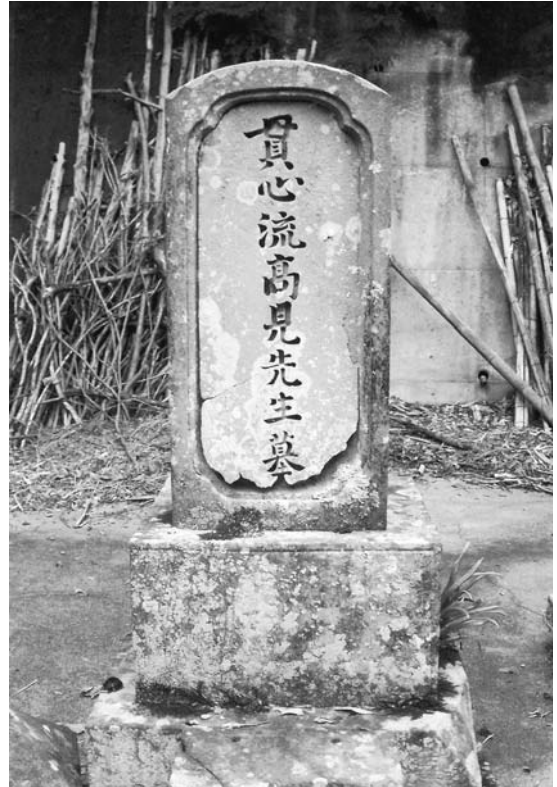 貫心流高見先生墓